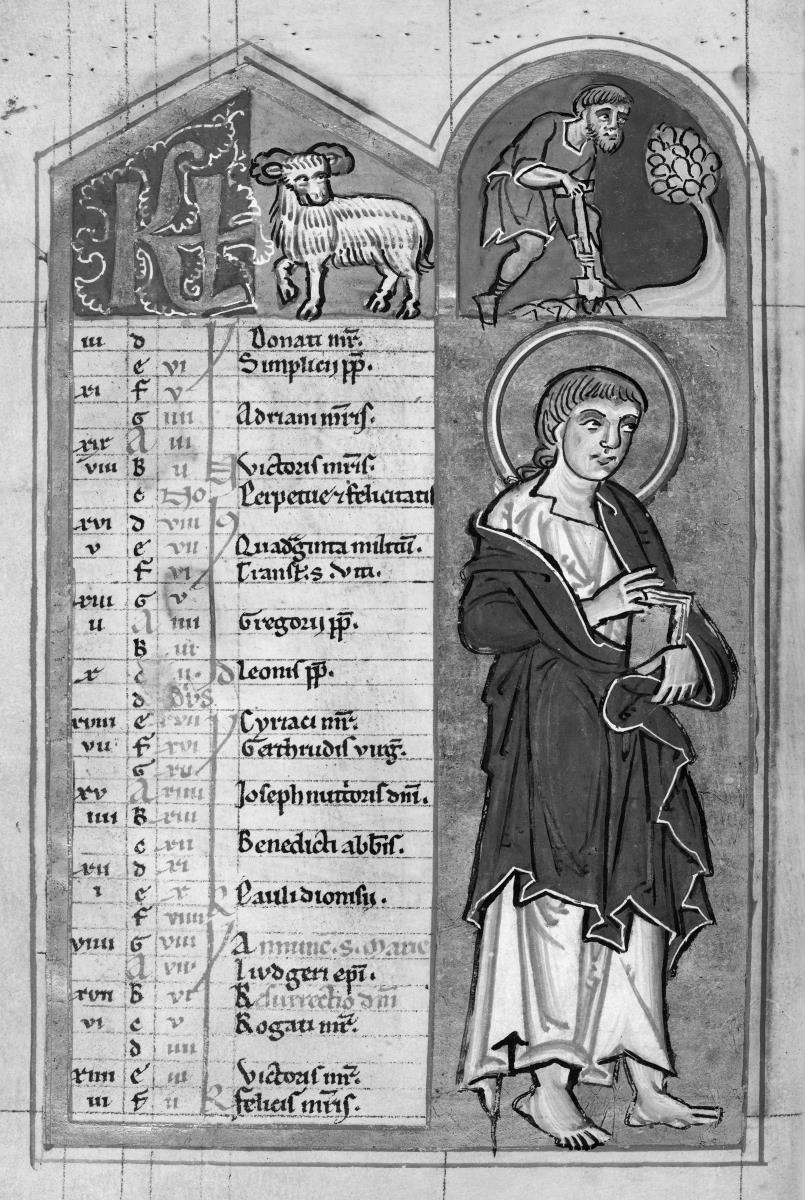 KL
iii d Donati mr̄.
e vi Simplicij pp̄.
xi f v
g iiii Adriani mr̄is.
xix A iii
viii B ii Victoris mr̄is.
c Perpetue ⁊ felicitatis
xvi d viii
v e vii Quadginta militū.
f vi Transl. s. viti.
xiii g v
ii A iiii Gregorij pp̄.
B iii
x c ii. Leonis pp̄.
d Dvs
xviii e xvii Cyriaci mr̄.
vii f xvi Gerthrudis virḡ.
g xv
xv A xiiii Joseph nutritoris dn̄i.
iiii B xiii
c xii Benedicti abb̄is.
xii d xi
i e x Pauli dionisii.
f viiii
viiii g viii Annunc. s. Marie
A vii Liudgeri ep̄i.
xvii B vi Resurrectio dn̄i
vi c v Rogati mr̄.
d iiii
xiiii e iii Victoris mr̄.
iii f ii felicis mr̄is.